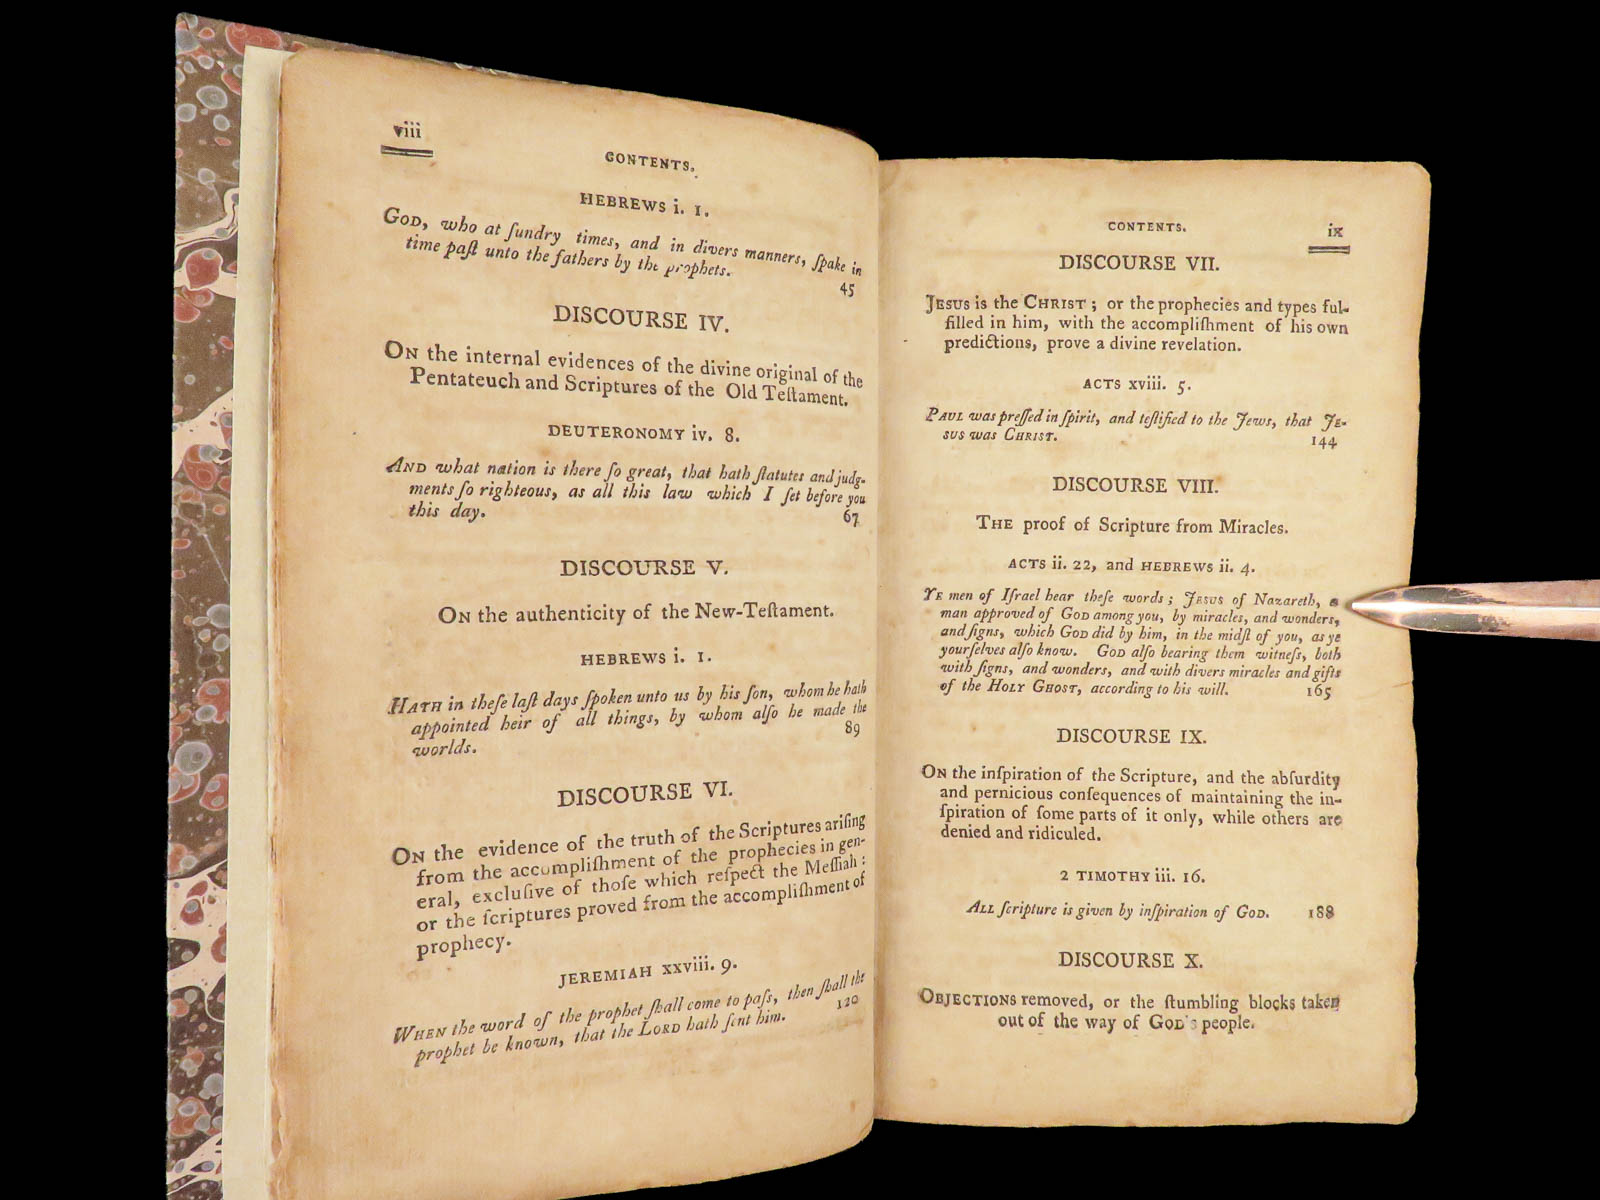 viii
CONTENTS.
HEBREWS i. 1.
GOD, who at ſundry times, and in divers manners, ſpake in
time paſt unto the fathers by the prophets.
45
DISCOURSE IV.
ON the internal evidences of the divine original of the
Pentateuch and Scriptures of the Old Teſtament.
DEUTERONOMY iv. 8.
AND what nation is there ſo great, that hath ſtatutes and judg-
ments ſo righteous, as all this law which I ſet before you
this day. 67
DISCOURSE V.
ON the authenticity of the New-Teſtament.
HEBREWS i. 1.
HATH in theſe laſt days ſpoken unto us by his ſon, whom he hath
appointed heir of all things, by whom alſo he made the
worlds. 89
DISCOURSE VI.
ON the evidence of the truth of the Scriptures ariſing
from the accompliſhment of the prophecies in gen-
eral, excluſive of thoſe which reſpect the Meſſiah:
or the ſcriptures proved from the accompliſhment of
prophecy.
JEREMIAH xxviii. 9.
WHEN the word of the prophet ſhall come to paſs, then ſhall the
prophet be known, that the LORD hath ſent him. 120
CONTENTS. ix
DISCOURSE VII.
JESUS is the CHRIST; or the prophecies and types ful-
filled in him, with the accompliſhment of his own
predictions, prove a divine revelation.
ACTS xviii. 5.
PAUL was preſſed in ſpirit, and teſtified to the Jews, that JE-
SUS was CHRIST. 144
DISCOURSE VIII.
THE proof of Scripture from Miracles.
ACTS ii. 22, and HEBREWS ii. 4.
YE men of Iſrael hear theſe words; JESUS of Nazareth, a
man approved of GOD among you, by miracles, and wonders,
and ſigns, which GOD did by him, in the midſt of you, as ye
yourſelves alſo know. GOD alſo bearing them witneſs, both
with ſigns, and wonders, and with divers miracles and gifts
of the HOLY GHOST, according to his will. 165
DISCOURSE IX.
ON the inſpiration of the Scripture, and the abſurdity
and pernicious conſequences of maintaining the in-
ſpiration of ſome parts of it only, while others are
denied and ridiculed.
2 TIMOTHY iii. 16.
ALL ſcripture is given by inſpiration of GOD. 188
DISCOURSE X.
OBJECTIONS removed, or the ſtumbling blocks taken
out of the way of GOD's people.